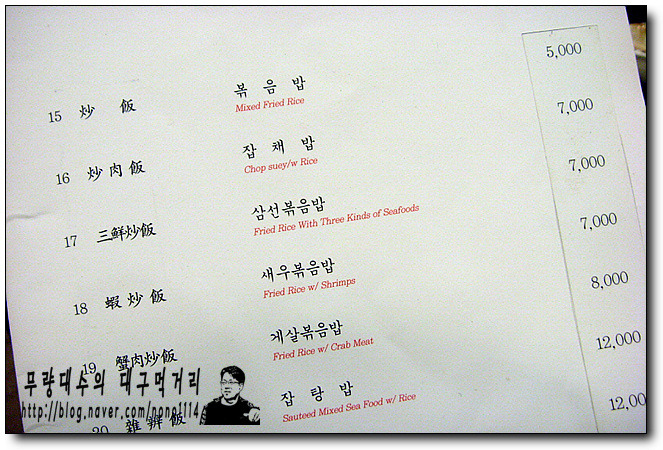 15 炒 飯 볶 음 밥 5,000
Mixed Fried Rice
16 炒 肉 飯 잡 채 밥 7,000
Chop suey/w Rice
17 三鮮炒飯 삼선볶음밥 7,000
Fried Rice With Three Kinds of Seafoods
18 蝦 炒 飯 새우볶음밥 7,000
Fried Rice w/ Shrimps
19 蟹肉炒飯 게살볶음밥 8,000
Fried Rice w/ Crab Meat
20 雜 飯 잡 탕 밥 12,000
Sauteed Mixed Sea Food w/ Rice
12,00
무량대수의 대구먹거리